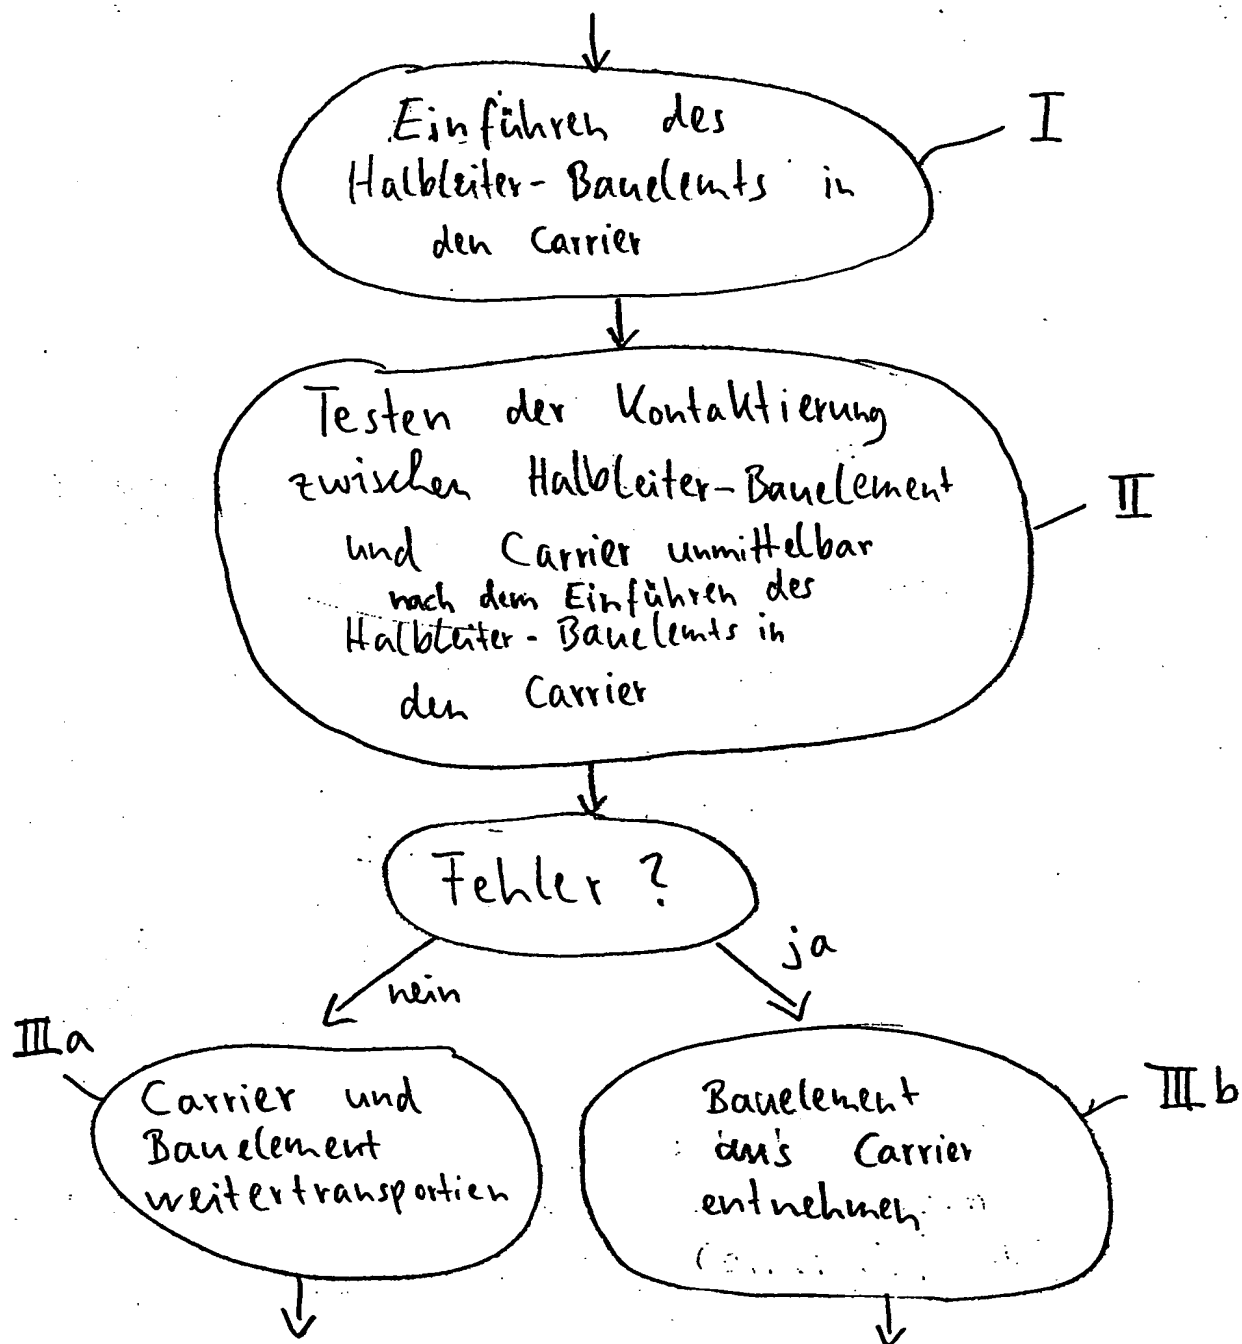 Einführen des
Halbleiter-Bauelemts in
den Carrier
I
Testen der Kontaktierung
zwischen Halbleiter-Bauelement
und Carrier unmittelbar
nach dem Einführen des
Halbleiter-Bauelemts in
den Carrier
II
Fehler ?
nein
ja
III a
Carrier und
Bauelement
weitertransportien
Bauelement
aus Carrier
entnehmen
III b